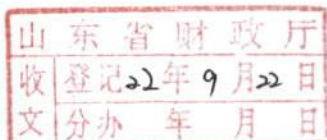 山东省财政厅
收 登记22年9月22日
文 分办 年 月 日